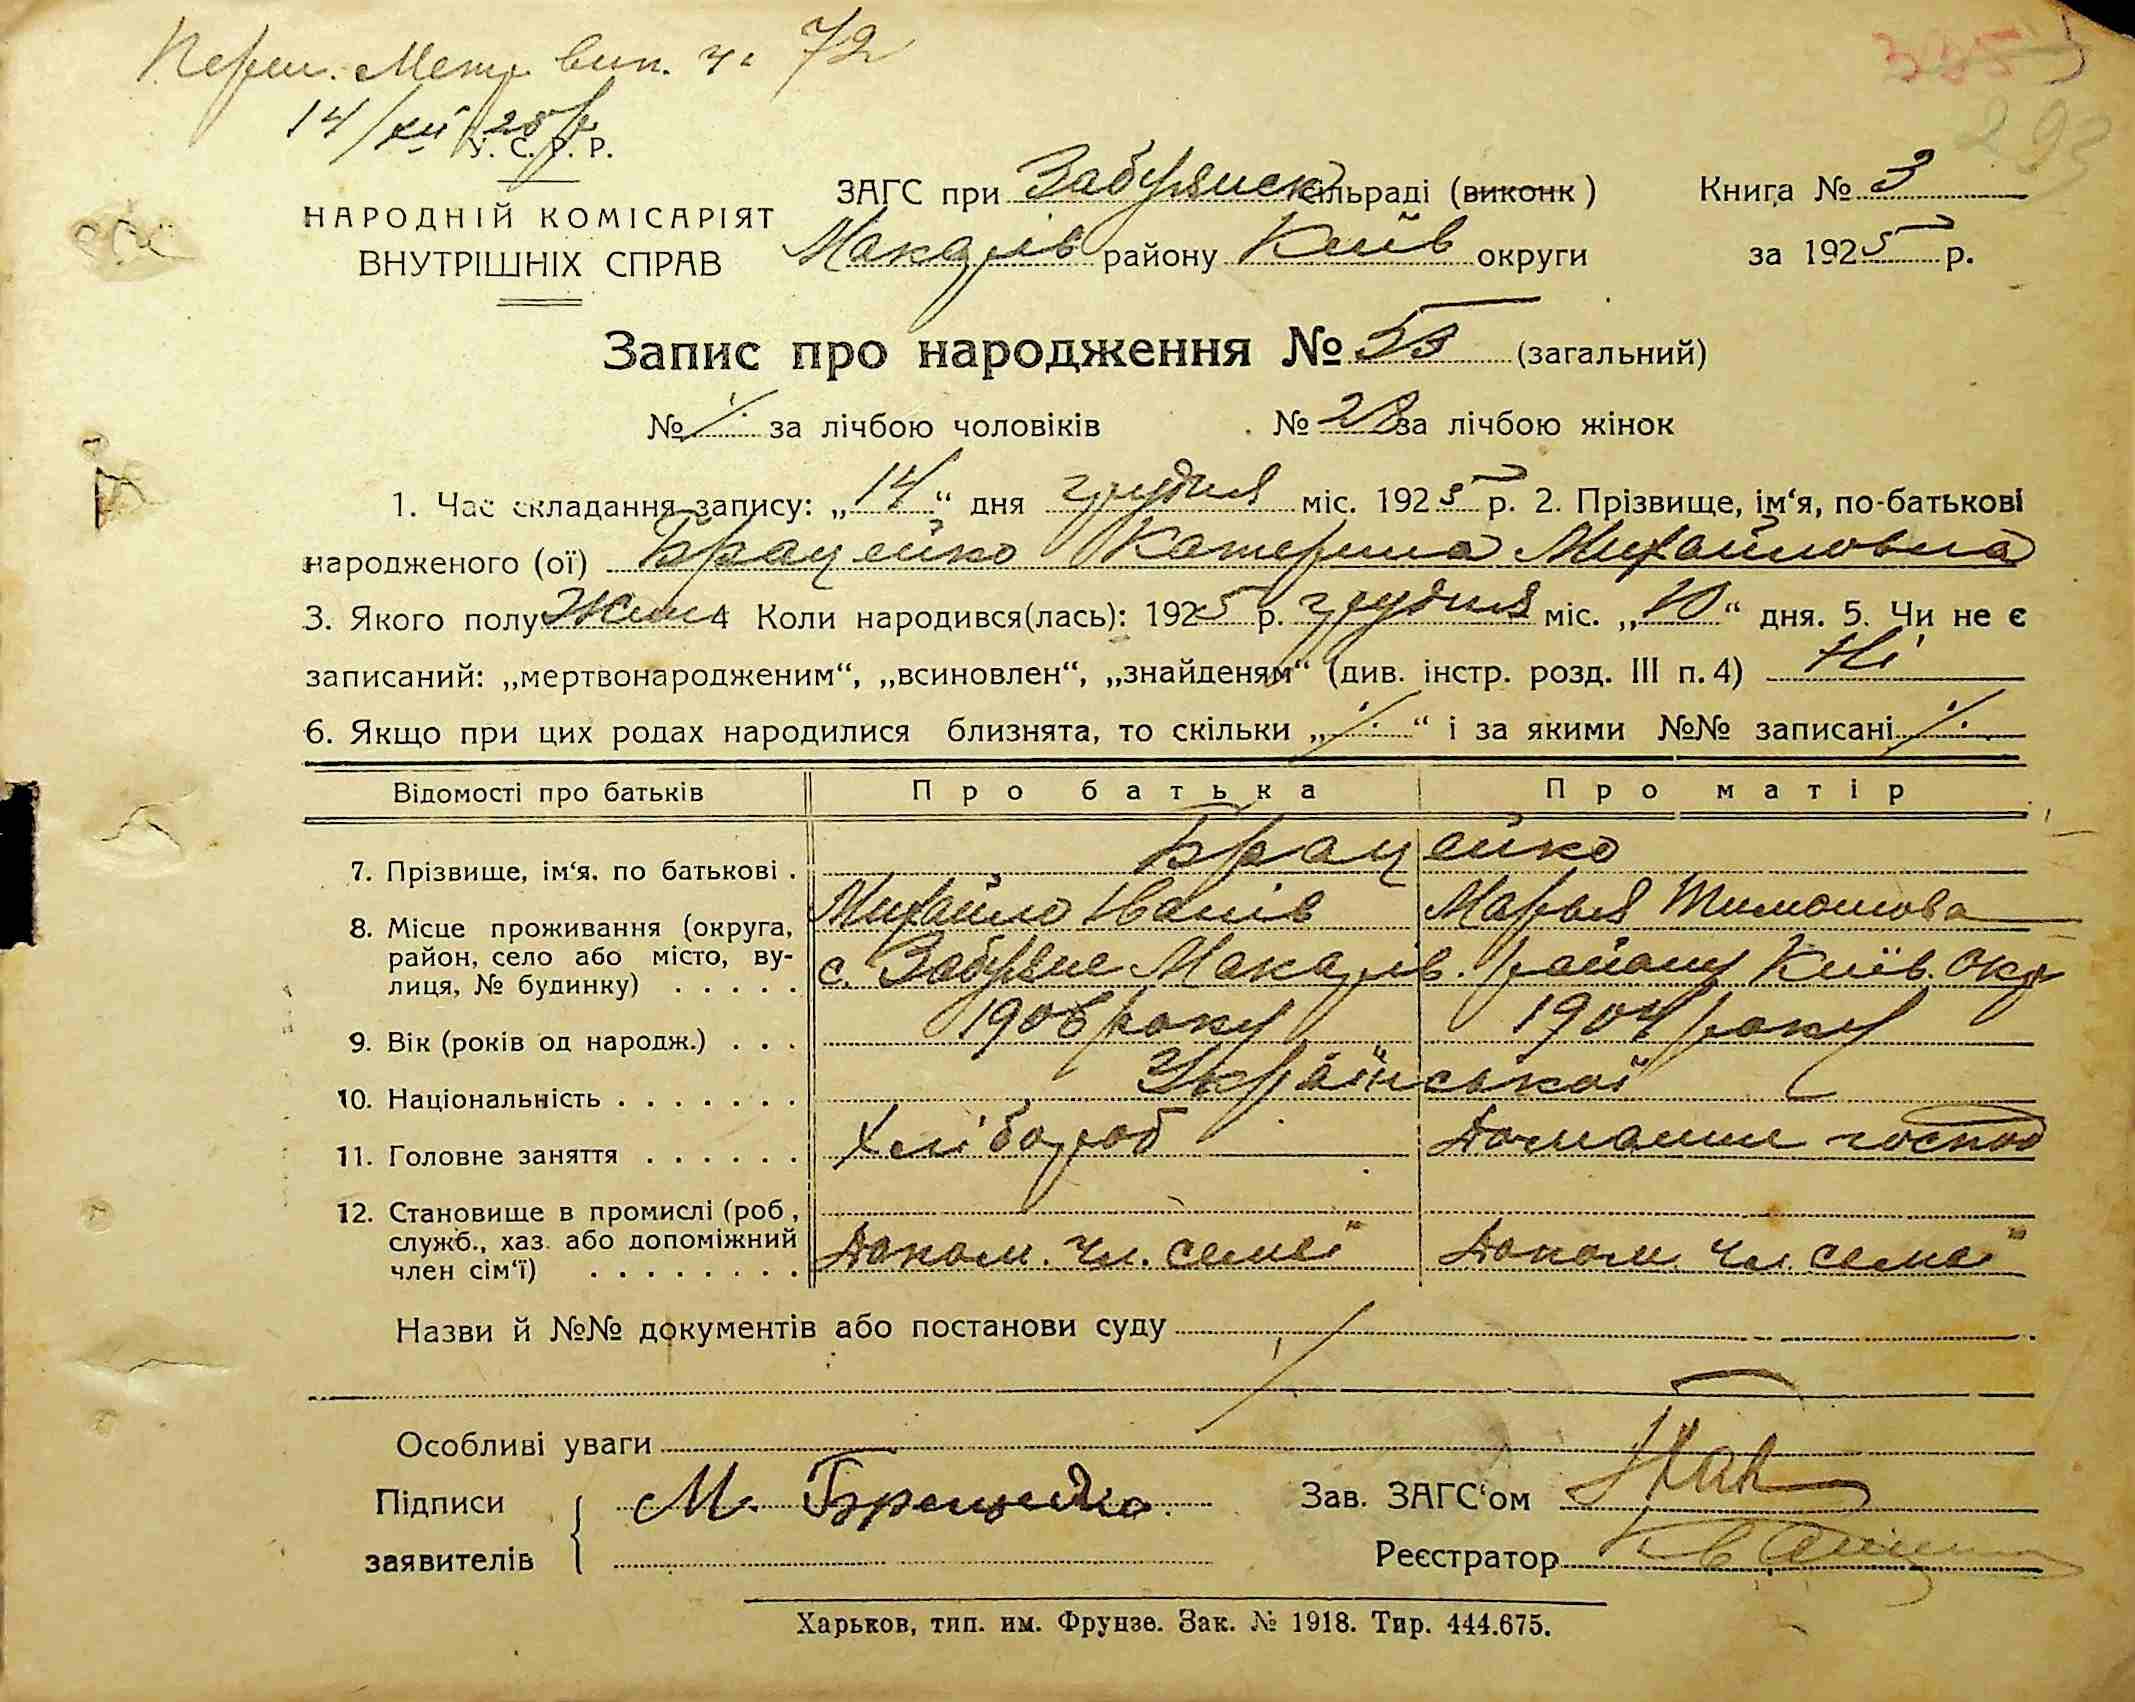 Перш. Метр. вип. ч. 72
14/XII 25 р.
У. С. Р. Р.
НАРОДНІЙ КОМІСАРІЯТ
ВНУТРІШНІХ СПРАВ
ЗАГС при Забуянськ сільраді (виконк)
Макарів району Київ округи
Книга № 3
за 1925 р.
Запис про народження № 53 (загальний)
№ ·/. за лічбою чоловіків № 28 за лічбою жінок
1. Час складання запису: „14“ дня грудня міс. 1925 р. 2. Прізвище, ім‘я, по-батькові
народженого (ої) Брацейко Катерина Михайловна
3. Якого полу Жін 4 Коли народився(лась): 1925 р. грудня міс. „10“ дня. 5. Чи не є
записаний: „мертвонародженим“, „всиновлен“, „знайденям“ (див. інстр. розд. III п. 4) Ні
6. Якщо при цих родах народилися близнята, то скільки „·/.“ і за якими №№ записані ·/.
Відомості про батьків Про батька Про матір
7. Прізвище, ім‘я, по батькові . Брацейко
Михайло Іванів Марья Тимошова
8. Місце проживання (округа,
район, село або місто, ву-
лиця, № будинку) . . . . . с. Забуяне Макарів. району Київ. окр
9. Вік (років од народж.) . . . 1906 року 1904 року
10. Національність . . . . . . . Української
11. Головне заняття . . . . . . Хлібороб Домашнє господ
12. Становище в промислі (роб,
служб., хаз. або допоміжний
член сім‘ї) . . . . . . . . Допом. чл. семєї Допом. чл. семєї
Назви й №№ документів або постанови суду
Особливі уваги
Підписи
заявителів
М. Брацейко.
Зав. ЗАГС‘ом
Реєстратор
Харьков, тип. им. Фрунзе. Зак. № 1918. Тир. 444.675.